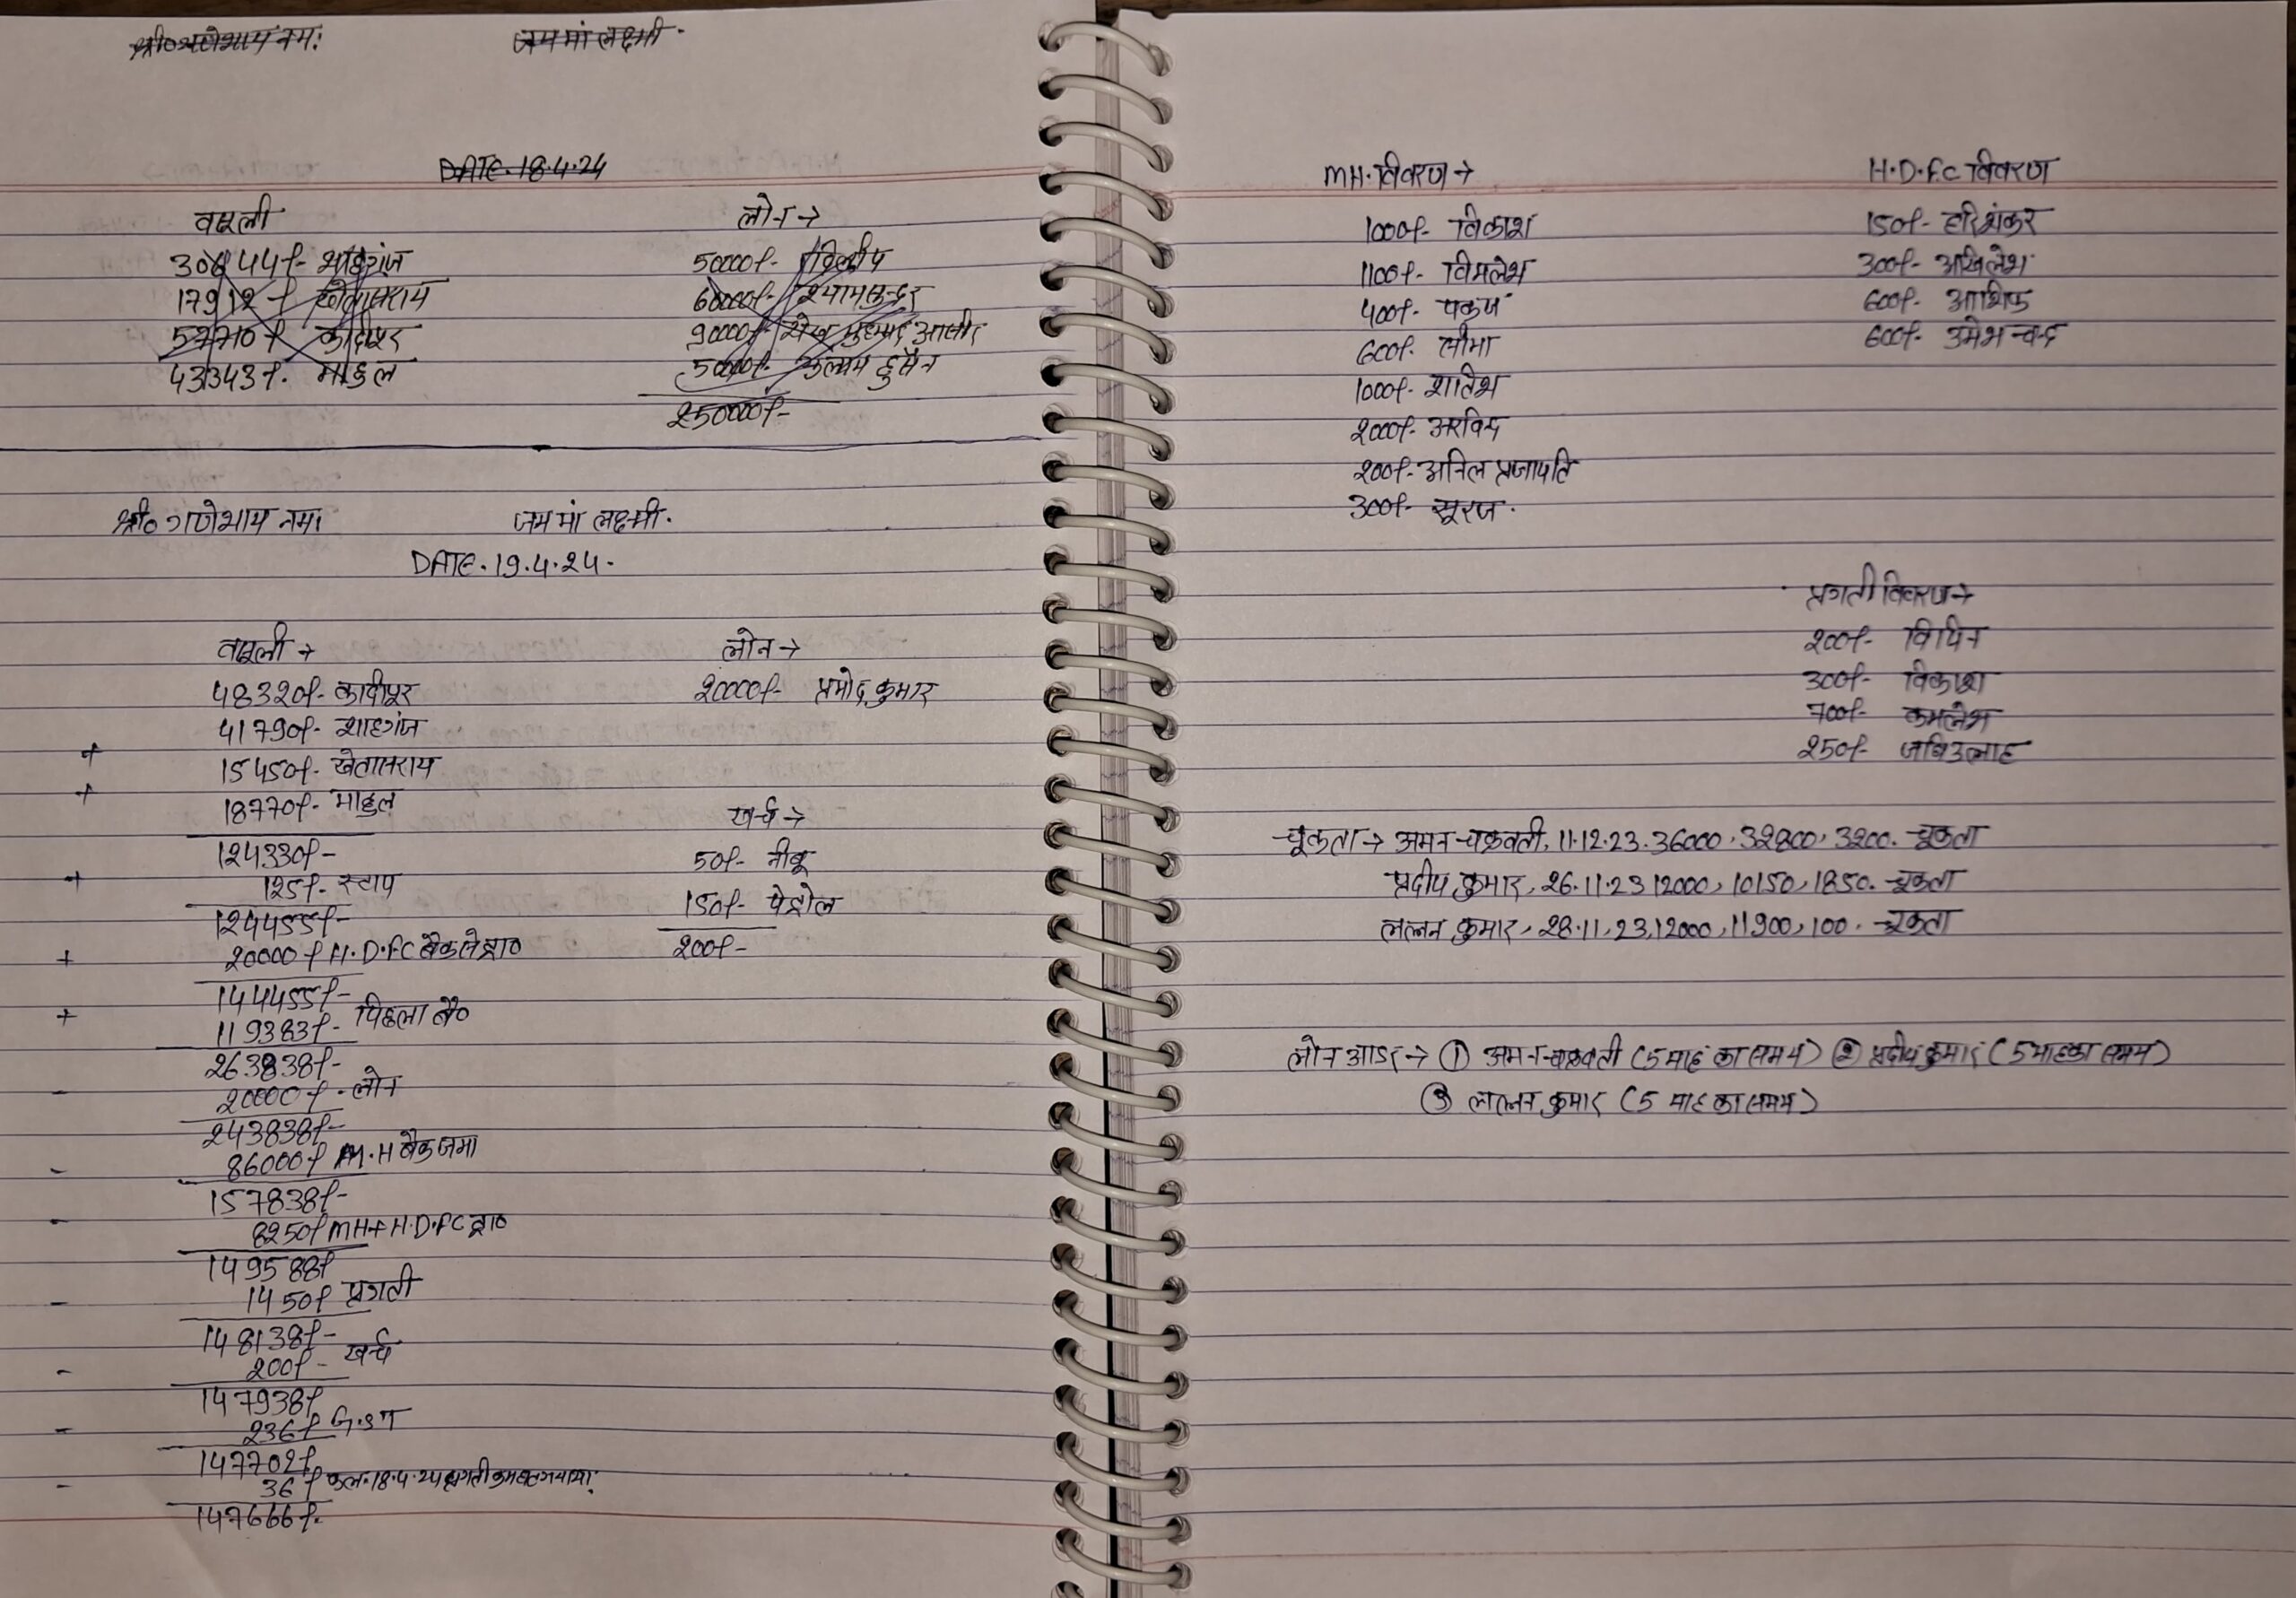 श्री० गणेशाय नमः जय मां लक्ष्मी.
DATE.18.4.24
वसूली
शाहगंज
17912/- खेतासराय
57710/- कादीपुर
43343/- माहुल
लोन→
50000/- दिलीप
60000/- श्यामसुन्दर
90000/- शेख मुहम्मद
50000/- हुसैन
250000/-
श्री० गणेशाय नमः जय मां लक्ष्मी.
DATE.19.4.24.
वसूली→
48320/- कादीपुर
41790/- शाहगंज
+ 15450/- खेतासराय
+ 18770/- माहुल
124330/-
+ 125/- स्टाप
124455/-
+ 20000/- H.D.FC बैंक से प्रा०
144455/-
+ 119383/- पिछला बै०
263838/-
- 20000/- लोन
243838/-
- 86000/- M.H बैंक जमा
157838/-
- 8250/- MH+H.D.FC प्रा०
149588/-
- 1450/- प्रगती
148138/-
- 200/- खर्च
147938/-
- 236/- G.ST
147702/-
- 36/- कल.18.4.24 प्रगती कम
147666/-
लोन→
20000/- प्रमोद कुमार
खर्च→
50/- नीबू
150/- पेट्रोल
200/-
MH.विवरण→
1000/- विकाश
1100/- विमलेश
400/- पकज
600/- सीमा
1000/- शातिश
2000/- अरविन्द
200/- अनिल प्रजापति
300/- सूरज.
H.D.F.C विवरण
150/- हरिशंकर
300/- अखिलेश
600/- आशिफ
600/- उमेश चन्द
प्रगती विवरण→
200/- विपिन
300/- विकाश
700/- कमलेश
250/- जबिउल्लाह
चूकता→ अमन चक्रवर्ती, 11.12.23.36000,32800,3200. चूकता
प्रदीप कुमार, 26.11.23 12000, 10150, 1850. चूकता
लल्लन कुमार, 28.11.23, 12000, 11900, 100. चूकता
लोन आडर→ ① अमन चक्रवर्ती (5 माह का समय) ② प्रदीप कुमार (5 माह का समय)
③ लल्लन कुमार (5 माह का समय)